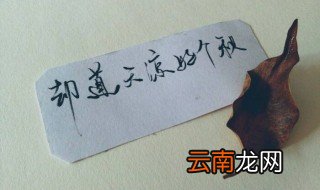 却道天凉好个秋
云南龙网